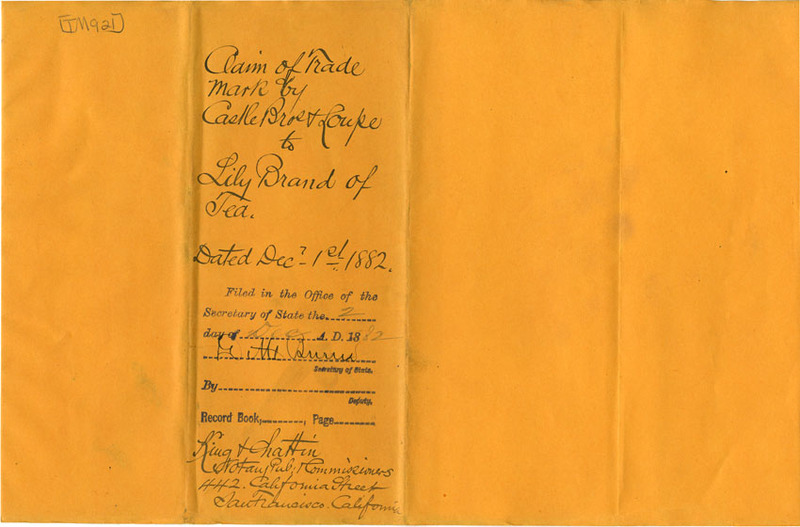 [TM921]
Claim of Trade
Mark by
Castle Bros & Loupe
to
Lily Brand of
Tea.
Dated Decr 1st 1882.
Filed in the Office of the
Secretary of State the 2
day of Dec A. D. 1882
Burns
Secretary of State.
By
Deputy.
Record Book, , Page
King & Chattin
Notary Pub, Commissioners
442. California Street
San Francisco. California